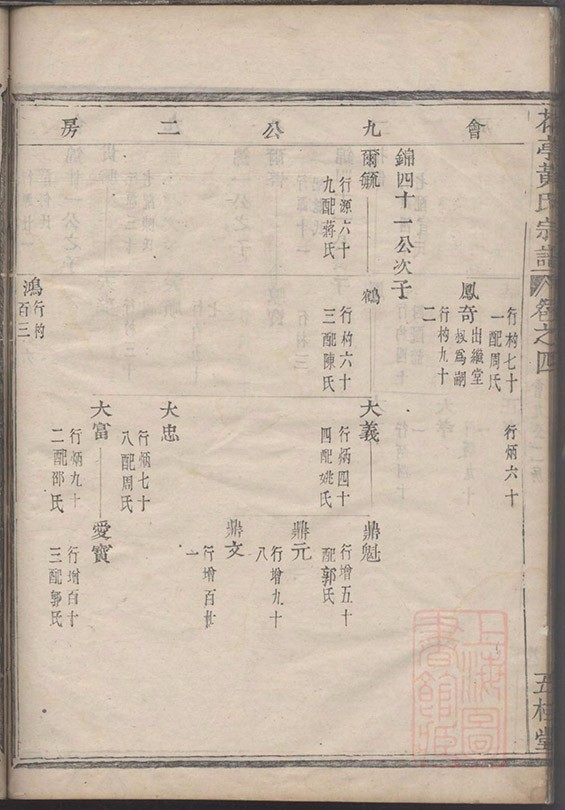 黃氏宗譜 卷之四
五桂堂
會九公二房
行杓七十
一配周氏
行炳六十
鳳奇
出繼堂
叔為嗣
行杓九十
二
錦四十一公次子
爾毓
行源六十
九配蔣氏
鶴
行杓六十
三配陳氏
大義
行炳四十
四配姚氏
鼎魁
行增五十
配郭氏
鼎元
行增九十
八
鼎文
行增百廿
一
大忠
行炳七十
八配周氏
大富
行炳九十
二配邵氏
愛寶
行增百十
三配郭氏
鴻
行杓
百三
上海圖
書館藏